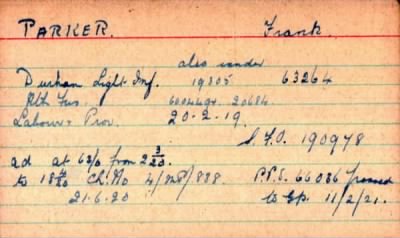 PARKER. Frank
also under
Durham Light Inf. 19305 63264
Rth Fus. 6004494. 20684.
Labour + Prov. 20-2-19.
S.F.O. 190978
ad at 62/0 from 2 3/20.
to 18 4/20 Ch. No 4/MP/888. P.P.S. 66086 passed
21.6.20 to Gp. 11/2/21.